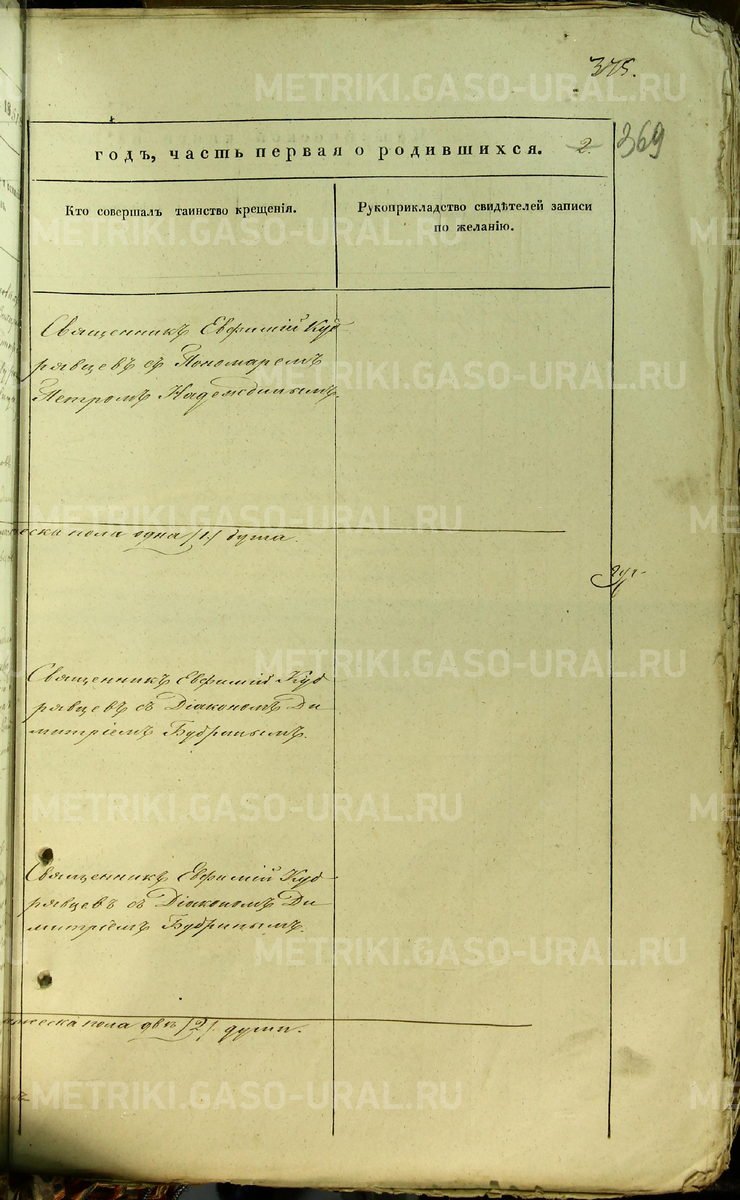 375.
годъ, часть первая о родившихся. 2. 369
Кто совершалъ таинство крещенія.
Рукоприкладство свидѣтелей записи
по желанію.
Священникъ Евфимій Куд
рявцевъ съ Пономаремъ
Петромъ Надеждинымъ.
ческа пола одна /1/ душа.
Священникъ Евфимій Куд
рявцевъ съ Діакономъ Ди
митріемъ Бубринымъ.
Священникъ Евфимій Куд
рявцевъ съ Діакономъ Ди
митріемъ Бубринымъ.
ческа пола двѣ /2/ души.
METRIKI.GASO-URAL.RU